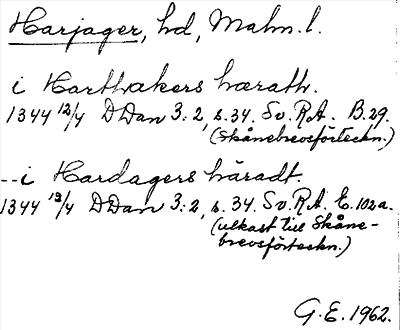 Harjager, hd, Malm. l.
i Harthakers hærath.
1344 12/4 DDan 3:2, s. 34. Sv. R.A. B.29.
(Skånebrevsförteckn.)
--i Hardagers häradt.
1344 12/4 DDan 3:2, s. 34. Sv. R.A. E.102a.
(utkast till Skåne-
brevsförteckn.)
G.E. 1962.